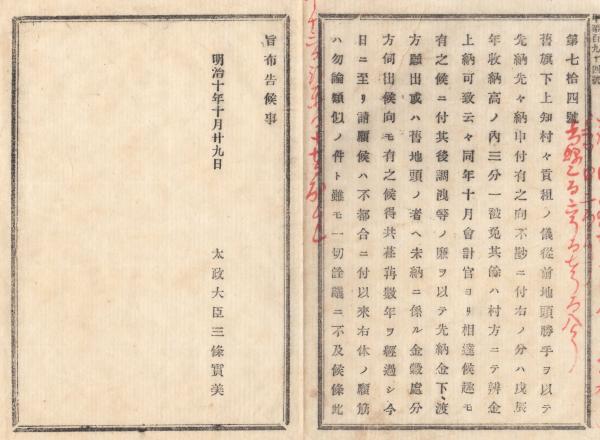 第七拾四號
舊旗下上知村々貢租ノ儀從前地頭勝手ヲ以テ
先納先々納申付有之向不尠ニ付右ノ分ハ戊辰
年收納高ノ內三分一被免其餘ハ村方ニテ辨金
上納可致云々同年十月會計官ヨリ相達候趣モ
有之候ニ付其後調洩等ノ廉ヲ以テ先納金下ヶ渡
方願出或ハ舊地頭ノ者ヘ未納ニ係ル金穀處分
方伺出候向モ有之候得共甚苒數年ヲ經過シ今
日ニ至リ請願候ハ不都合ニ付以來右休ノ願筋
ハ勿論類似ノ件ト雖モ一切詮議ニ不及候條此
旨布告候事
明治十年十月廿九日
太政大臣三條實美